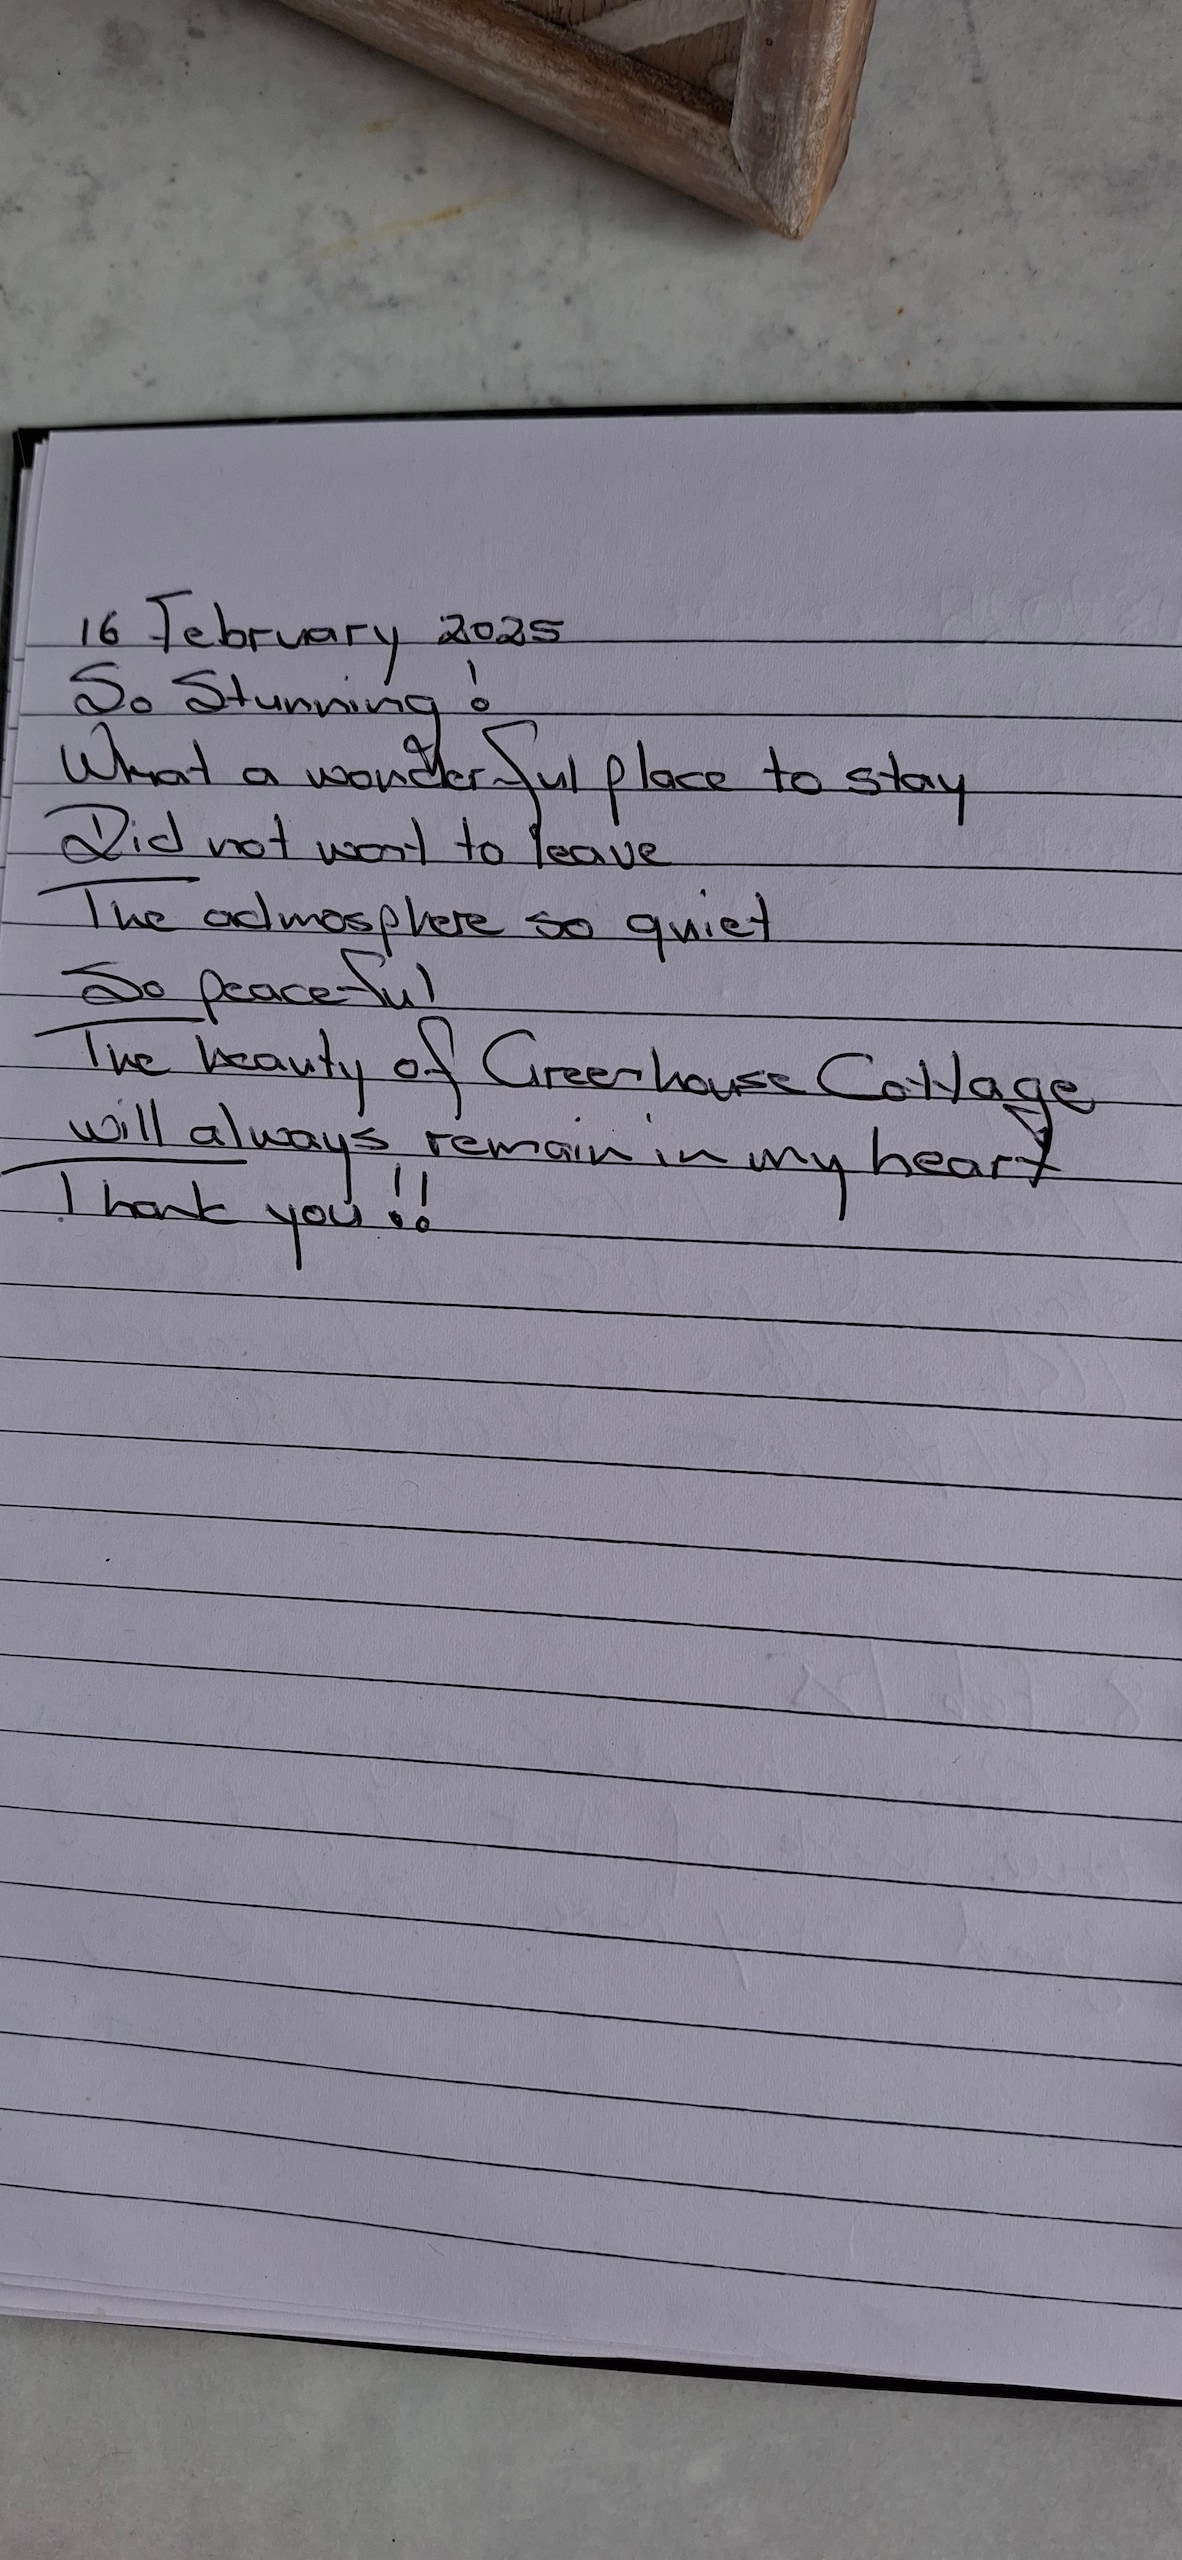 16 February 2025
So Stunning!
What a wonderful place to stay
Did not want to leave
The admosphere so quiet
So peaceful
The beauty of Greenhouse Cottage
will always remain in my heart
Thank you!!